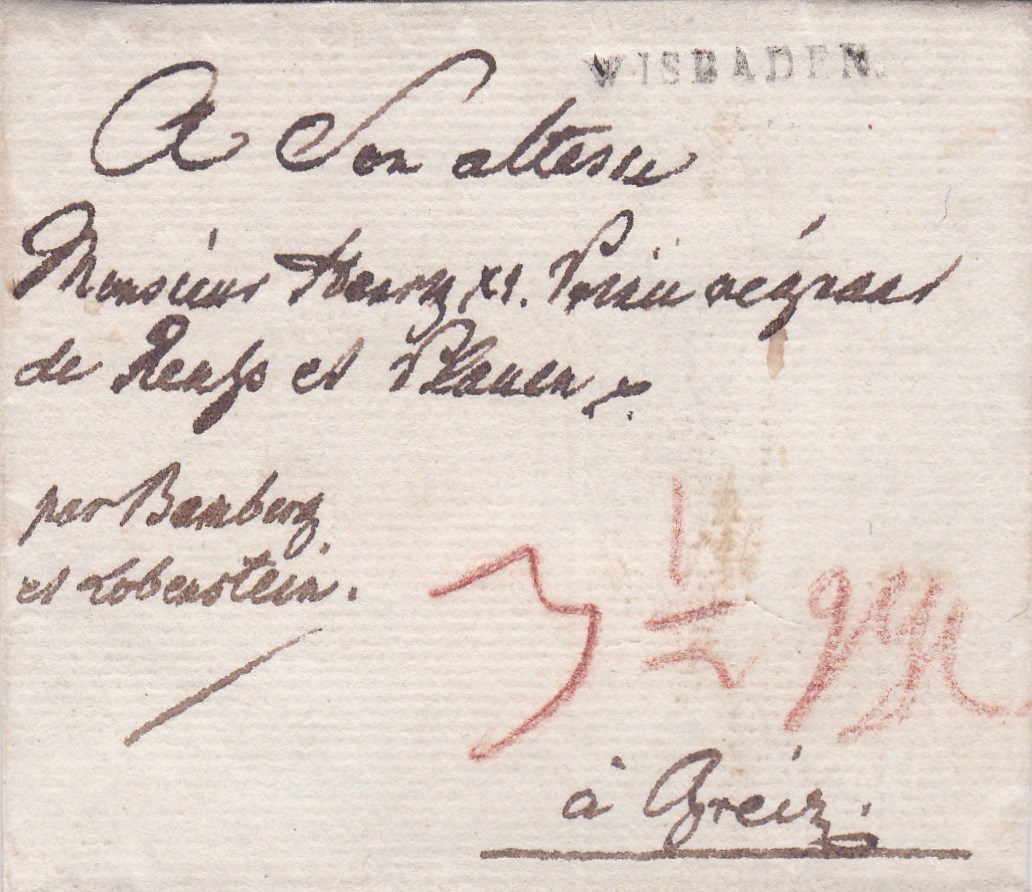 WISBADEN.
A Son altesse
Monsieur Henry XI. Prince régnant
de Reuss et Plauen
per Bamberg
et Lobenstein.
3 1/2
à Greiz.